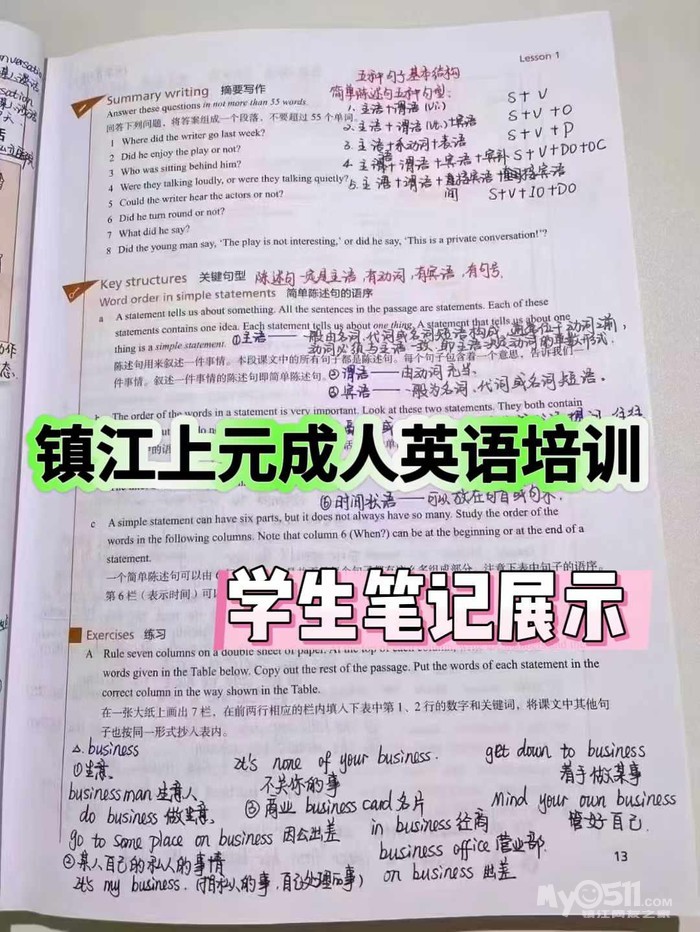 Lesson 1
Summary writing 摘要写作
Answer these questions in not more than 55 words.
回答下列问题，将答案组成一个段落，不要超过 55 个单词。
1 Where did the writer go last week?
2 Did he enjoy the play or not?
3 Who was sitting behind him?
4 Were they talking loudly, or were they talking quietly?
5 Could the writer hear the actors or not?
6 Did he turn round or not?
7 What did he say?
8 Did the young man say, 'The play is not interesting,' or did he say, 'This is a private conversation!'?
五种句子基本结构
简单陈述句五种句型:
1. 主语+谓语(vi.) S+V
2. 主语+谓语(vt.)+宾语 S+V+O
3. 主语+系动词+表语 S+V+P
4. 主语+谓语+宾语+宾补 S+V+DO+OC
5. 主语+谓语+
S+V+IO+DO
Key structures 关键句型 陈述句一定是主语,有动词,有宾语,有句号
Word order in simple statements 简单陈述句的语序
a A statement tells us about something. All the sentences in the passage are statements. Each of these
statements contains one idea. Each statement tells us about one thing. A statement that tells us about one
thing is a simple statement. ①主语——一般由名词、代词或名词短语构成,通常位于动词之前,
动词必须与主语一致,即主语决定动词的单数形式.
陈述句用来叙述一件事情。本段课文中的所有句子都是陈述句。每个句子包含着一个意思，告诉我们一
件事情。叙述一件事情的陈述句即简单陈述句。②谓语——由动词充当.
③宾语——一般为名词、代词或名词短语.
The order of the words in a statement is very important. Look at these two statements. They both contain
镇江上元成人英语培训
⑥时间状语——可以放在句首或句末.
c A simple statement can have six parts, but it does not always have so many. Study the order of the
words in the following columns. Note that column 6 (When?) can be at the beginning or at the end of a
statement.
一个简单陈述句可以由 注意下表中句子的语序。
第 6 栏（表示时间）可
学生笔记展示
Exercises 练习
A Rule seven columns on a double sheet of paper. At the top of each
words given in the Table below. Copy out the rest of the passage. Put the words of each statement in the
correct column in the way shown in the Table.
在一张大纸上画出 7 栏，在前两行相应的栏内填入下表中第 1、2 行的数字和关键词，将课文中其他句
子也按同一形式抄入表内。
△. business
①生意.
businessman 生意人
do business 做生意.
go to some place on business 因公出差
②某人自己的私人的事情
It's my business.
It's none of your business.
不关你的事
③商业 business card 名片
in business 经商
business office 营业部.
on business 出差
get down to business
着手做某事
Mind your own business
管好自己.
13
My0511.COM
镇江网友之家